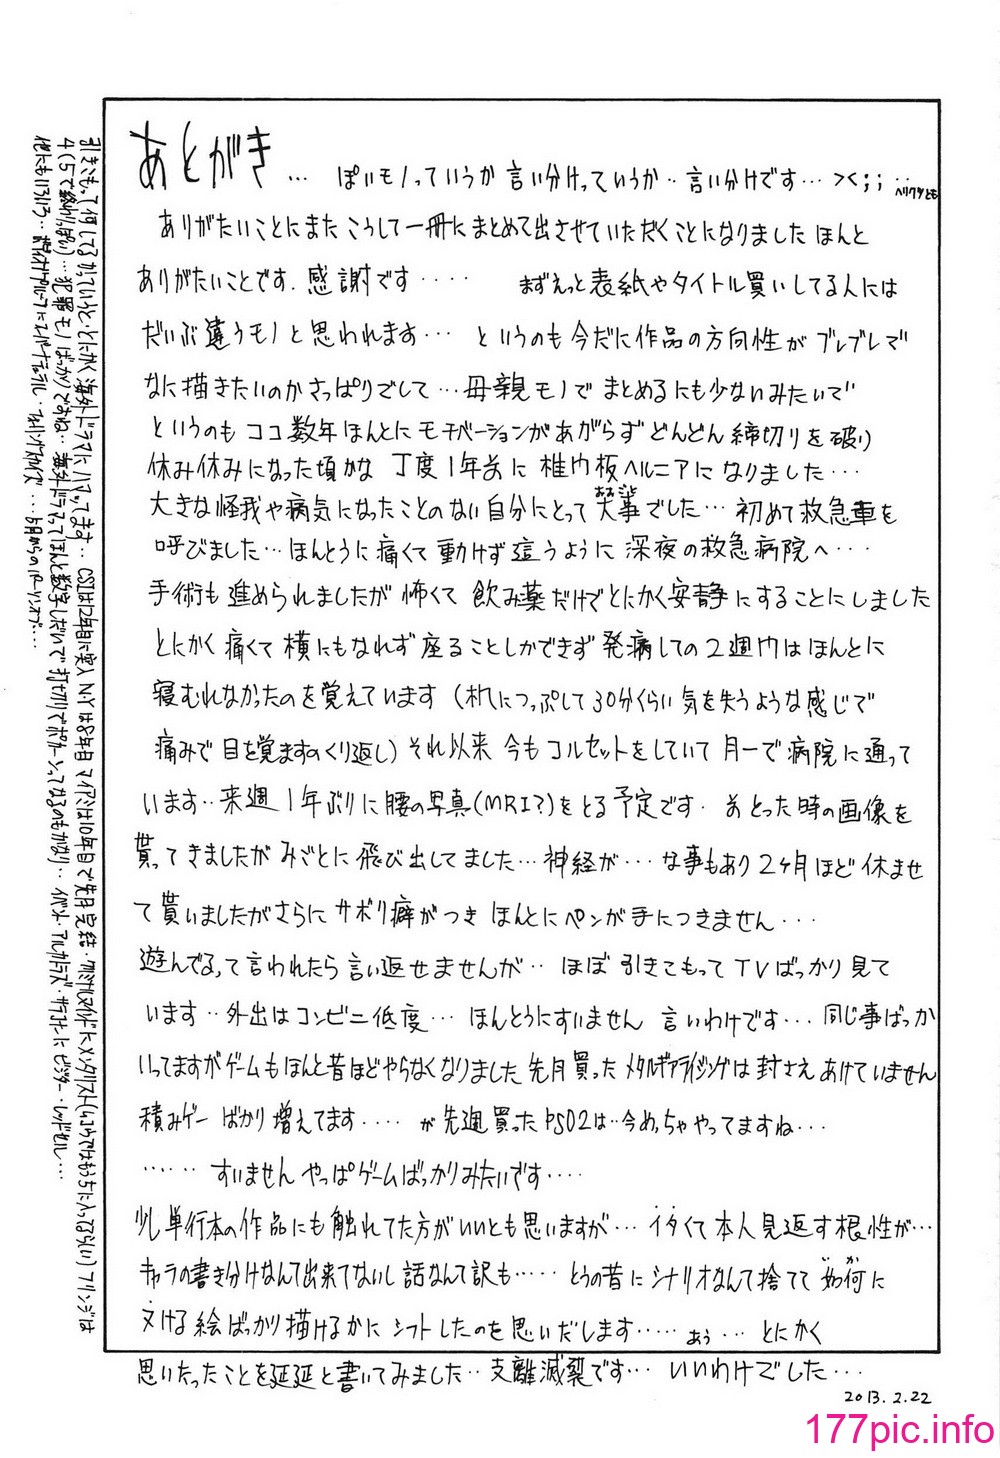 あとがき… ぽいモノっていうか 言い分けっていうか‥言い分けです… ><;;‥
ありがたいことにまた こうして一冊に まとめて出させていただくことになりました ほんと
ありがたいことです. 感謝です‥‥ まずえっと表紙やタイトル買いしてる人には
だいぶ違うモノと思われます… というのも今だに作品の方向性がブレブレで
なに描きたいのかさっぱりでして… 母親モノで まとめるにも少ないみたいで
というのも ココ数年ほんとに モチベーションがあがらず どんどん 締切りを破り
休み休みになった頃かな 丁度1年前に 椎間板ヘルニアに なりました…
大きな怪我や病気になったことのない自分にとって 大事でした… 初めて救急車を
呼びました…ほんとうに痛くて 動けず 這うように 深夜の救急病院へ…
手術も進められましたが 怖くて 飲み薬だけでとにかく安静にすることにしました
とにかく 痛くて 横にもなれず 座ることしかできず 発病しての2週間はほんとに
寝むれなかったのを覚えています (机につっぷして30分くらい気を失うような感じで
痛みで 目を覚ますのくり返し) それ以来 今もコルセットをしていて 月一で 病院に通って
います‥来週1年ぶりに腰の写真(MRI?)をとる予定です. まえとった時の画像を
貰ってきましたが みごとに 飛び出してました…神経が… な事もあり 2ヶ月ほど 休ませ
て貰いましたがさらに サボり癖がつき ほんとにペンが手につきません…
遊んでるって言われたら 言い返せませんが‥ ほぼ引きこもって TVばっかり見て
います‥外出はコンビニ低度… ほんとうにすいません 言いわけです… 同じ事ばっか
いってますがゲームもほんと昔ほどやらなくなりました 先月買った メタルギアライジングは封さえあけていません
積みゲーばかり増えてます‥‥ が 先週買ったPSO2は‥今めっちゃやってますね…
…… すいません やっぱゲームばっかりみたいです‥‥
少し単行本の作品にも触れてた方がいいとも思いますが… イタくて本人見返す根性が…
キャラの書き分けなんて出来てないし 話なんて訳も…‥ とうの昔に シナリオなんて捨てて 如何に
ヌける絵ばっかり描けるかに シフトしたのを思いだします…‥ あぅ… とにかく
思いたったことを延延と書いてみました‥支離滅裂です… いいわけでした…
2013.2.22
引きこもって何してるかっていうと・とにかく海外ドラマにハマってます‥ CSIは12年目に突入 N.Yは8年目 マイアミは10年目で先月完結・クリミナルマインドにメンタリスト
犯罪モノばっかりですね‥海外ドラマってほんと数字しだいで打切りで
177pic.info